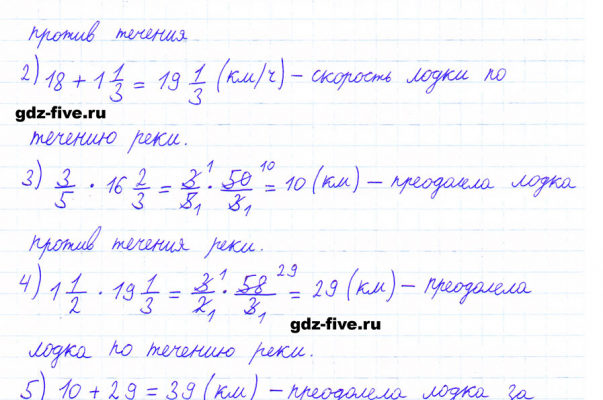 против течения
2) 18 + 1 1/3 = 19 1/3 (км/ч) – скорость лодки по
gdz-five.ru
течению реки.
3) 3/5 · 16 2/3 = 3 1/5 1 · 50 10/3 1 = 10 (км) – преодолела лодка
против течения реки.
4) 1 1/2 · 19 1/3 = 3 1/2 1 · 58 29/3 1 = 29 (км) – преодолела
gdz-five.ru
лодка по течению реки.
5) 10 + 29 = 39 (км) – преодолела лодка за